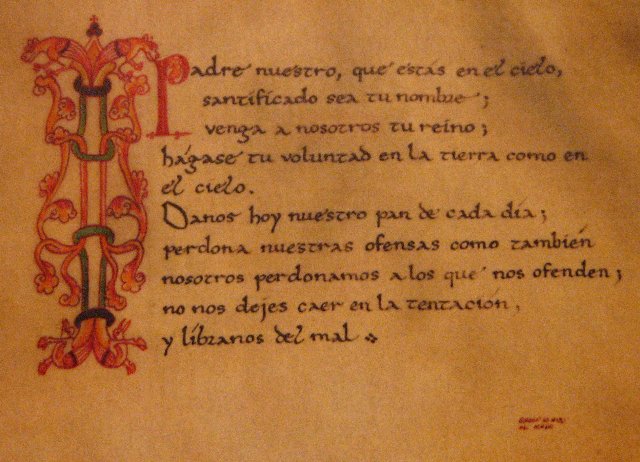 Padre nuestro, que estás en el cielo,
santificado sea tu nombre;
venga a nosotros tu reino;
hágase tu voluntad en la tierra como en
el cielo.
Danos hoy nuestro pan de cada día;
perdona nuestras ofensas como también
nosotros perdonamos a los que nos ofenden;
no nos dejes caer en la tentación,
y líbranos del mal